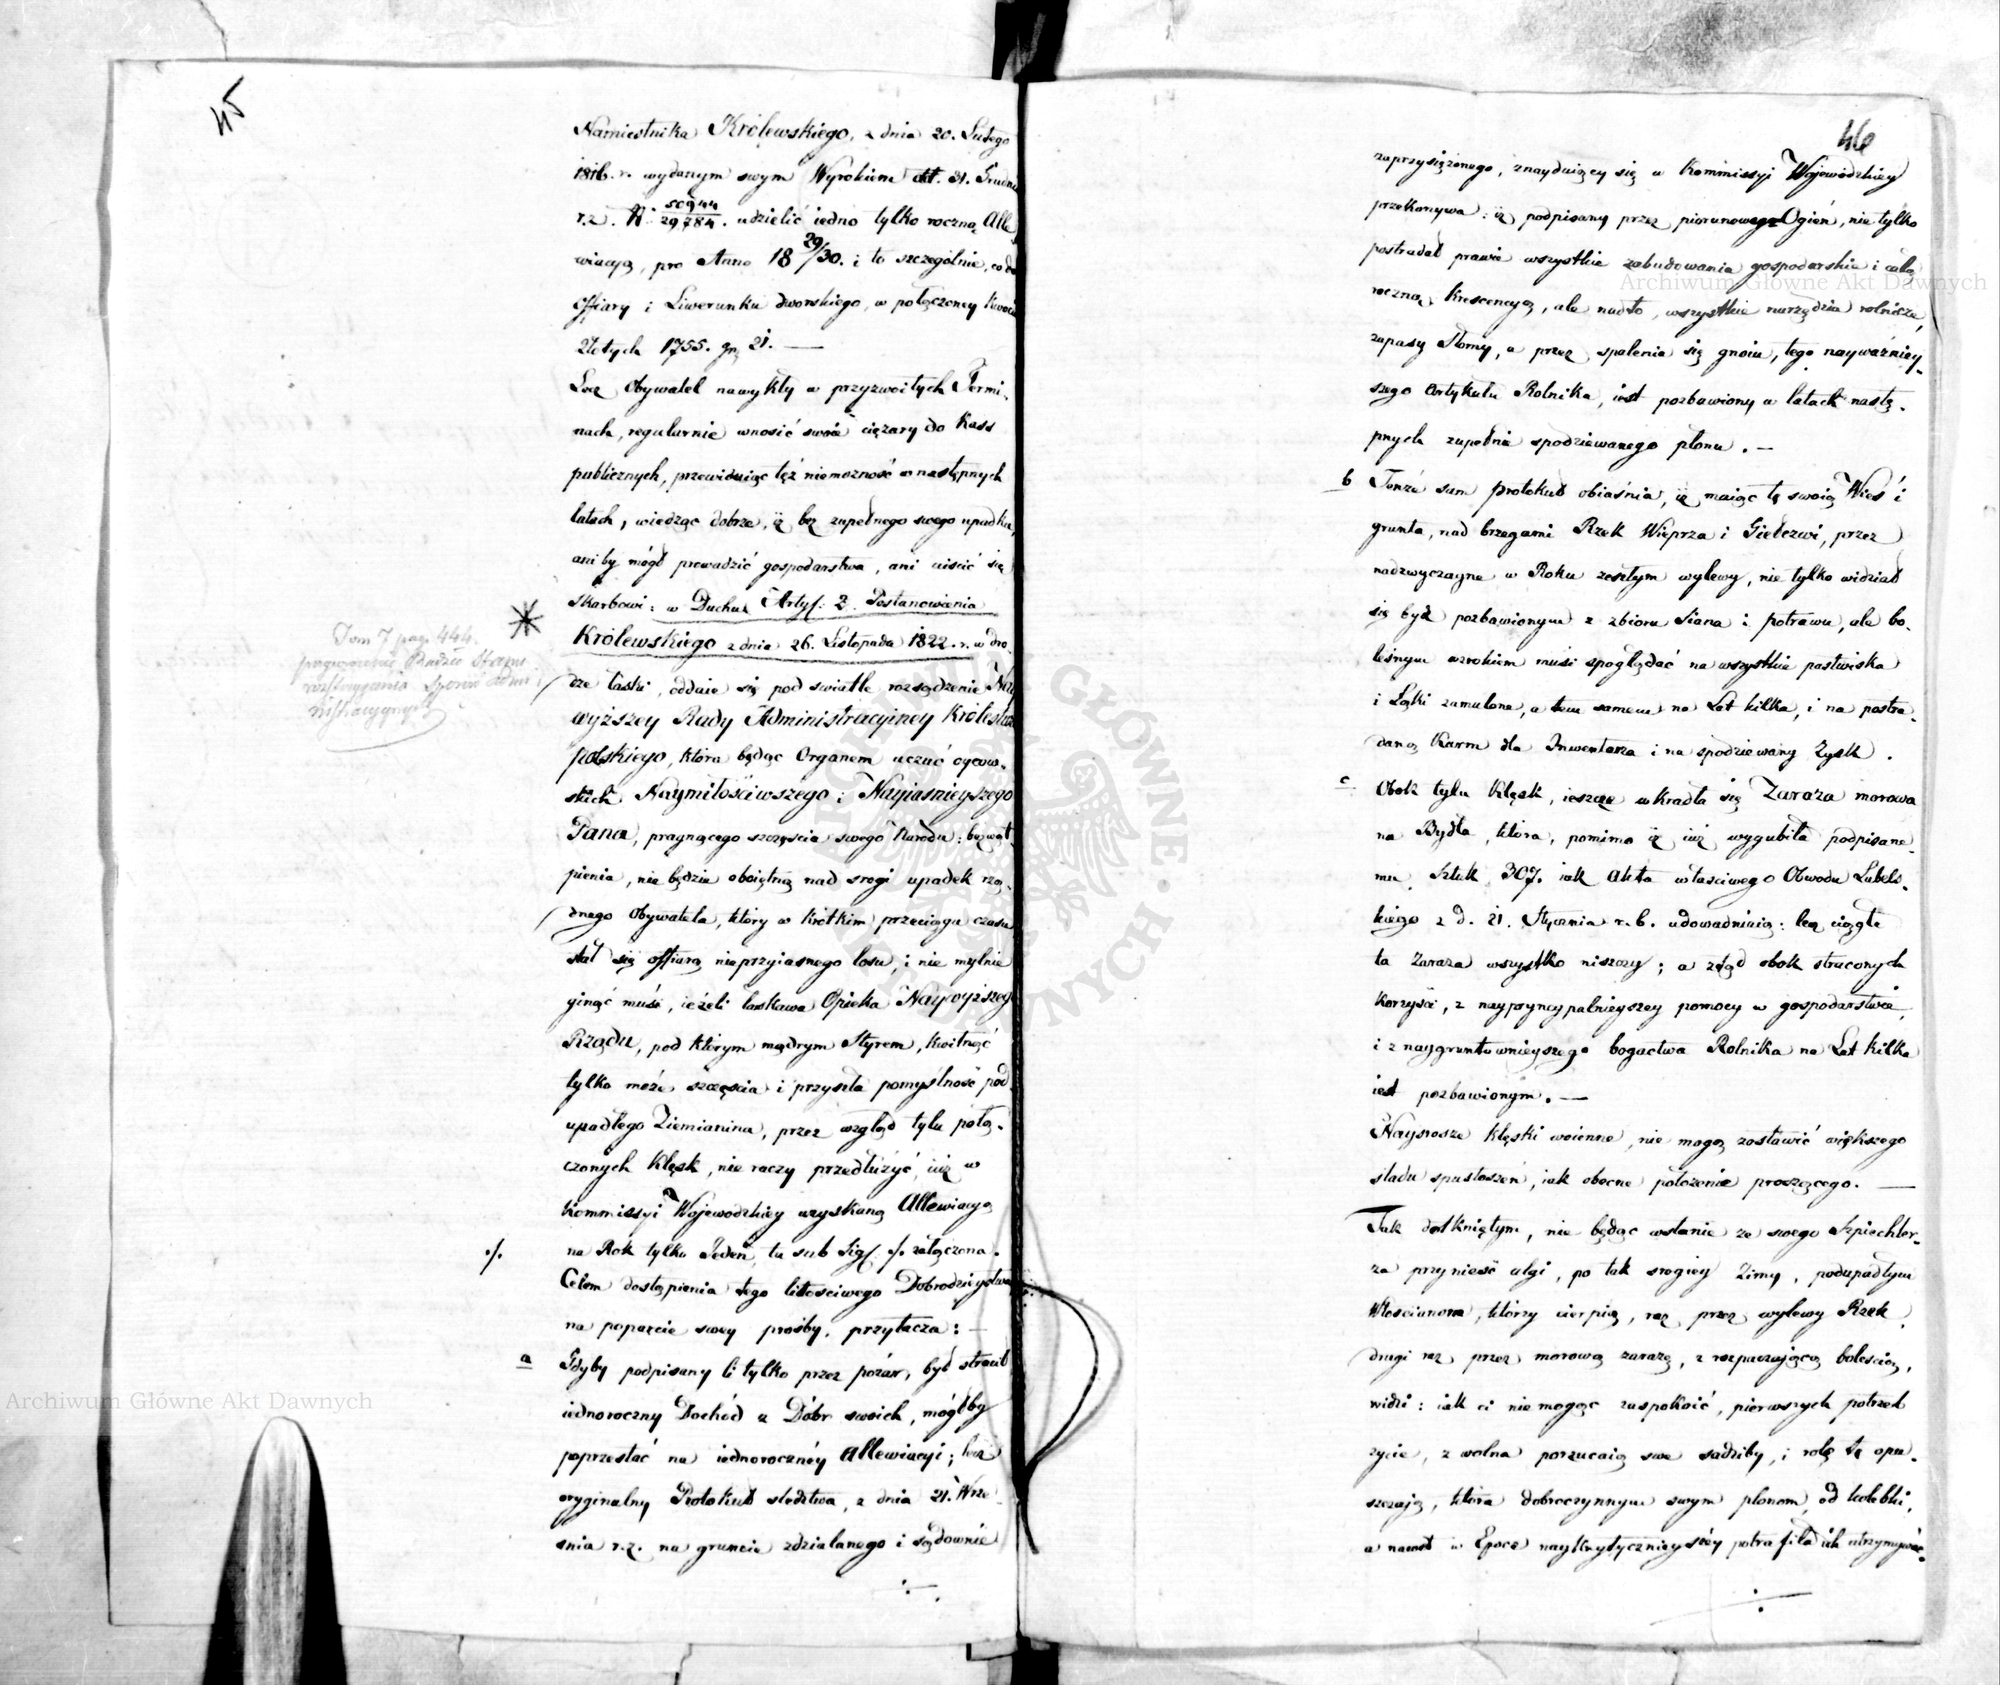 45
Namiestnika Królewskiego, z dnia 20. Lutego
1816. r. wydanym swym Wyrokiem dd. 31. Grudnia
r.z. N: 50944/29784. udzielić iedno tylko roczną Alle-
wiacyą, pro Anno 18 29/30. i to szczególnie, co do
offiary i Liwerunku dworskiego, w połączoney kwocie
Złotych 1755. gr 21. —
Lecz Obywatel nawykły w przyzwoitych Termi-
nach, regularnie wnosić swoie ciężary do Kass
publicznych, przewiduiąc też niemożność w następnych
latach, wiedząc dobrze, iż bez zupełnego swego upadku,
ani by mógł prowadzić gospodarstwa, ani uiścić się
Skarbowi: w Duchu Artyk: 3. Postanowienia
Królewskiego z dnia 26. Listopada 1822. r. w dro-
dze łaski, oddaie się pod światłe rozsądzenie Nay-
wyższey Rady Administracyiney Królestwa
Polskiego, która będąc Organem uczuć oycow-
skich Naymiłościwszego i Nayiaśnieyszego
Pana, pragnącego szczęścia swego Narodu: bez wąt-
pienia, nie będzie oboiętną nad srogi upadek rzą-
dnego Obywatela, który w krótkim przeciągu czasu
stał się offiarą nieprzyiasnego losu, i nie mylnie
ginąć musi, ieżeli łaskawa Opieka Naywyższego
Rządu, pod którym mądrym Styrem, kwitnąć
tylko może szczęścia i przyszła pomyślność pod-
upadłego Ziemianina, przez wzgląd tylu połą-
czonych klęsk, nie raczy przedłużyć, iuż w
Kommissyi Woiewodzkiey uzyskaną Allewiacyą
./. na Rok tylko Jeden, tu sub Sig. ./. załączona.
Celem dostąpienia tego litościwego Dobrodzieystwa
na poparcie swey prośby, przytacza: —
a Gdyby podpisany li tylko przez pożar, był stracił
iednoroczny Dochód z Dóbr swoich, mógłby
poprzestać na iednoroczney Allewiacyi; lecz
oryginalny Protokuł śledztwa, z dnia 21. Wrze-
śnia r.z. na gruncie zdziałanego i sądownie
Tom 7 pag. 444.
Radzie Stanu
rozstrzygania Sporów admi-
nistracyjnych
46
zaprzysiężonego, znayduiący się w Kommissyi Woiewodzkiey
przekonywa: iż podpisany przez piorunowy Ogień, nie tylko
postradał prawie wszystkie zabudowania gospodarskie i całą
roczną Krescencyą, ale nadto, wszystkie narzędzia rolnicze,
zapasy Słomy, a przez spalenie się gnoiu, tego nayważniey-
szego artykułu Rolnika, iest pozbawiony w latach nastę-
pnych zupełnie spodziewanego plonu. —
b Tenże sam protokuł obiaśnia, iż maiąc tę swoią Wieś i
grunta, nad brzegami Rzek Wieprza i Giełczwi, przez
nadzwyczayne w Roku zeszłym wylewy, nie tylko widział
się być pozbawionym z zbioru Siana i potrawu, ale bo-
leśnym wzrokiem musi spoglądać na wszystkie pastwiska
i Łąki zamulone, a tem samem na Lat kilka, i na postra-
daną Karm dla Inwentarza i na spodziewany Zysk.
c Obok tylu klęsk, ieszcze wkradła się Zaraza morowa
na Bydło, która, pomimo iż iuż wygubiła podpisane-
mu, Sztuk 307. iak Akta właściwego Obwodu Lubels-
kiego z d. 21. Stycznia r. b. udowadniaią: lecz ciągle
ta Zaraza wszystko niszczy; a ztąd obok straconych
korzyści, z naypryncypalnieyszey pomocy w gospodarstwie,
i z naygruntownieyszego bogactwa Rolnika na Lat kilka
iest pozbawionym. —
Naysrosze klęski woienne, nie mogą zostawić większego
śladu spustoszeń, iak obecne położenie proszącego. —
Tak dotkniętym, nie będąc wstanie ze swego Szpichler-
za przynieść ulgi, po tak srogiey Zimy, podupadłym
Włościanom, którzy cierpią, raz przez wylewy Rzek,
drugi raz przez morową zarazę, z rozpaczaiącą boleścią,
widzi: iak ci nie mogąc zaspokoić, pierwszych potrzeb
życie, z wolna porzucaią swe sadziby, i rolę tę opu-
szczaią, która dobroczynnym swym plonem od kolebki,
a nawet w Epoce naykrytycznieyszéy potrafiła ich utrzymywać.